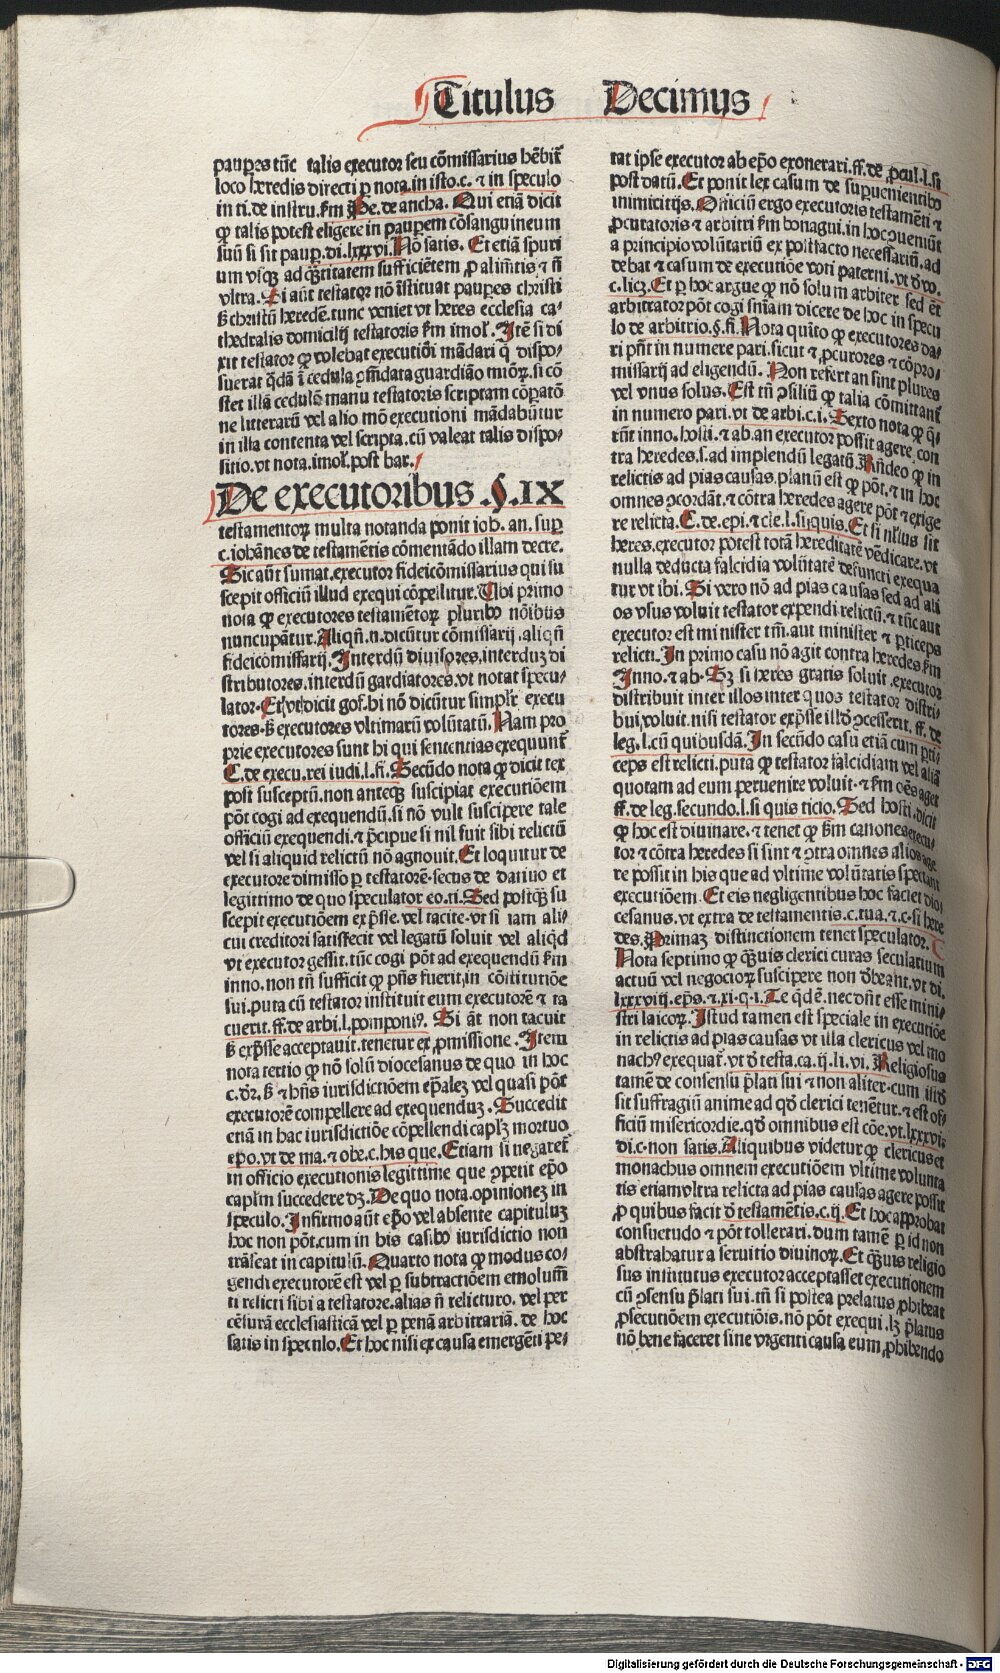 Titulus Decimus
paupes tūc talis executor seu cōmissarius hēbit̄
loco heredis directi ꝑ nota in isto.c. ⁊ in speculo
in ti. de instru. km̄ Pe. de ancha. Qui etiā dicit
ꝙ talis potest eligere in pauperem cōsanguineum
suū si sit paup. di. lxxxvi. Nō satis. Et etiā spuri
um vsq̄ ad q̄titatem sufficiētem ꝓ alimētis ⁊ nō
vltra. Si aūt testator nō īstituat pauperes christi
sȝ christū heredē. tunc veniet vt heres ecclesia ca-
thedralis domicilij testatoris km̄ imol. Itē si di
xit testator ꝙ volebat executiōi mādari q̄ dispo-
suerat q̄dā ī cedula cōmēdata guardiāo mīoꝝ. si cō
stet illā cedulē manu testatoris scriptam cōꝑatō
ne litterarū vel alio mō executioni mādabūtur
in illa contenta vel scripta. cū valeat talis dispo-
sitio. vt nota. imol. post bar.
De executoribus .§. IX
testamentoꝝ multa notanda ponit ioh. an. suꝑ
c. iohānes de testamētis cōmentādo illam decre.
Sic aūt sumat. executor fideicōmissarius qui su
scepit officiū illud exequi cōpellitur. Tibi primo
nota ꝙ executores testamētoꝝ pluribꝰ nōibus
nuncupātur. Aliqn̄. n. dicūtur cōmissarij. aliqn̄
fideicōmissarij. Interdū diuisores. interduȝ di
stributores. interdū gardiatores. vt notat specu-
lator. Et vt dicit gof. hi nō dicūtur simplr̄ execu
tores. sȝ executores vltimarū volūtatū. Nam pro
prie executores sunt hi qui sentencias exequunt̄
C. de execu. rei iudi. l. fi. Secūdo nota ꝙ dicit tex
post susceptū. non anteq̄ȝ suscipiat executiōem
pōt cogi ad exequendū. si nō vult suscipere tale
officiū exequendi. ⁊ p̄cipue si nil fuit sibi relictū
vel si aliquid relictū nō agnouit. Et loquitur de
executore dimisso ꝑ testatorē. secus de datiuo et
legittimo de quo speculator eo. ti. Sed postq̄ȝ su
scepit executiōem exp̄sse. vel tacite. vt si iam ali-
cui creditori satisfecit vel legatū soluit vel aliqđ
vt executor gessit. tūc cogi pōt ad exequendū km̄
inno. non tn̄ sufficit ꝙ pn̄s fuerit, in cōstitutiōe
sui. puta cū testator instituit eum executorē ⁊ ta
cuerit. ff. de arbi. l. pomponiꝰ. Si āt non tacuit
sȝ exp̄sse acceptauit. tenetur ex ꝓmissione. Item
nota tertio ꝙ nō solū diocesanus de quo in hoc
c. dr̄. sȝ ⁊ hn̄s iurisdictiōem ep̄aleȝ vel quasi pōt
executorē compellere ad exequenduȝ. Succedit
etiā in hac iurisdictiōe cōpellendi caplȝ mortuo
epo. vt de ma. ⁊ obe. c. his que. Etiam si negaret̄
in officio executionis legittime que ꝯpetit epō
caplm̄ succedere dȝ. De quo nota. opinioneȝ in
speculo. Infirmo aūt epō vel absente capituluȝ
hoc non pōt. cum in his casibꝰ iurisdictio non
trāseat in capitulū. Quarto nota ꝙ modus co-
gendi executorē est vel ꝑ subtractiōem emolum̄
ti relicti sibi a testatore. alias n̄ relicturo. vel per
cēsurā ecclesiasticā vel ꝑ penā arbitrariā. de hoc
satis in specnlo. Et hoc nisi ex causa emergēti pe-
tat ipse executor ab epō exonerari. ff. de ꝓcul. l. si
post datū. Et ponit lex casum de suꝑuenientibꝰ
inimicitijs. Officiū ergo executoris testamēti ⁊
ꝓcuratoris ⁊ arbitri km̄ bonagui. in hoc ꝯueniūt
a principio volūtariū ex postfacto necessariū. ad
debat ⁊ casum de executiōe voti paterni. vt đ vo.
c. licȝ. Et ꝑ hoc argue ꝙ nō solum arbiter sed et̄
arbitrator pōt cogi snīam dicere de hoc in specu
lo de arbitrio. §. fi. Nota quīto ꝙ executores da-
ri pn̄t in numere pari. sicut ⁊ ꝓcurores ⁊ cōpro-
missarij ad eligendū. Non refert an sint plures
vel vnus solus. Est tn̄ ꝯsiliū ꝙ talia cōmittant̄
in numero pari. vt de arbi. c. i. Sexto nota ꝙ q̄-
rūt inno. hosti. ⁊ ab. an executor possit agere con
tra heredes. s. ad implendū legatū. Rn̄deo ꝙ in
relictis ad pias causas. planū est ꝙ pōt. ⁊ in hoc
omnes ꝯcordāt. ⁊ cōtra heredes agere pōt ⁊ exige
re relicta. C. de. epi. ⁊ cle. l. si quis. Et si nllus sit
heres. executor potest totā hereditatē vēdicare. vt
nulla deducta falcidia volūtatē defuncti exequa
tur vt ibi. Si vero nō ad pias causas sed ad ali
os vsus voluit testator expendi relictū. ⁊ tūc aut
executor est minister tm̄. aut minister ⁊ ꝑticeps
relicti. In primo casu nō agit contra heredes km̄
Inno. ⁊ ab. Sȝ si heres gratis soluit. executor
distribuit inter illos inter quos testator distri-
bui. voluit. nisi testator exp̄sse illđ ꝯcesserit. ff. de
leg. l. cū quibusdā. In secūdo casu etiā cum ꝑti-
ceps est relicti. puta ꝙ testator falcidiam vel aliā
quotam ad eum peruenire voluit. ⁊ km̄ oēs aget
ff. de leg. secundo. l. si quis ticio. Sed hosti. dicit
ꝙ hoc est diuinare. ⁊ tenet ꝙ km̄ canones execu-
tor ⁊ cōtra heredes si sint ⁊ ꝯtra omnes alios age
re possit in his que ad vltime volūtatis spectant
executiōem. Et eis negligentibus hoc faciet dio-
cesanus. vt extra de testamentis. c. tua. ⁊. c. si here
des. Primaȝ distinctionem tenet speculator.
Nota septimo ꝙ q̄uis clerici curas secularium
actuū vel negocioꝝ suscipere non đbeant. vt di.
lxxxviij. ep̄s. ⁊. xi. q. i. Te q̄dē. nec dn̄t esse mini-
stri laicoꝝ. Istud tamen est speciale in executiōe
in relictis ad pias causas vt illa clericus vel mo
nachꝰ exequat̄. vt đ testa. ca. ij. li. vi. Religiosus
tamē de consensu p̄lati sui ⁊ non aliter. cum illđ
sit suffragiū anime ad qđ clerici tenētur. ⁊ est of-
ficiū misericordie. qđ omnibus est cōe. vt. lxxxvi.
di. c. non satis. Aliquibus videtur ꝙ clericus et
monachus omnem executiōem vltime volunta
tis etiam vltra relicta ad pias causas agere possit
ꝓ quibus facit đ testamētis. c. ij. Et hoc approbat
consuetudo ⁊ pōt tollerari. dum tamē ꝑ id non
abstrahatur a seruitio diuinoꝝ. Et q̄ȝuis religio
sus institutus executor acceptasset executionem
cū ꝯsensu p̄lati sui. tn̄ si postea prelatus ꝓhibeat
ꝓsecutiōem executiōis. nō pōt exequi. lȝ p̄latus
nō bene faceret sine vrgenti causa eum ꝓhibendo
Digitalisierung gefördert durch die Deutsche Forschungsgemeinschaft - DFG